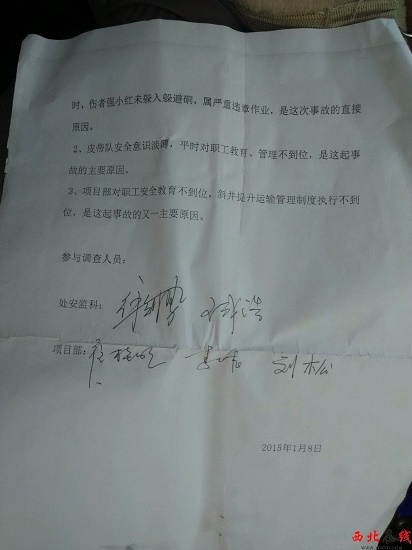 时，伤者强小红未躲入躲避硐，属严重违章作业，是这次事故的直接
原因。
2、皮带队安全意识淡薄，平时对职工教育、管理不到位，是这起事
故的主要原因。
3、项目部对职工安全教育不到位，斜井提升运输管理制度执行不到
位，是这起事故的又一主要原因。
参与调查人员：
处安监科：
项目部： 刘松
2015年1月8日
西北在线